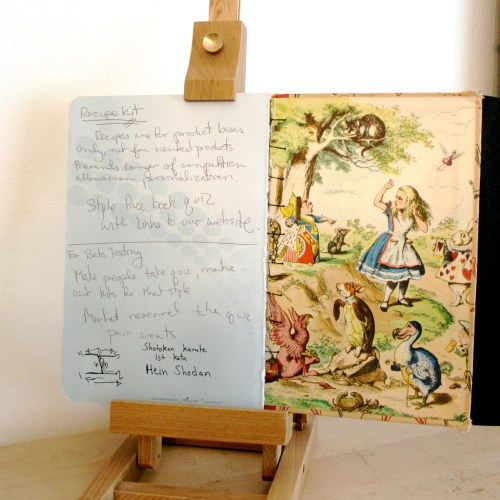 Recipe kit
Recipes are for product bases
only, not for scented products
Prevents danger of competition
allows even personalization.
Style Face book quiz
with links to our website.
For Beta Testing
Make people take quiz, make
out kits for that style
Market research the quiz
pair scents
Shotokan karate
1st kata
Hein Shodan